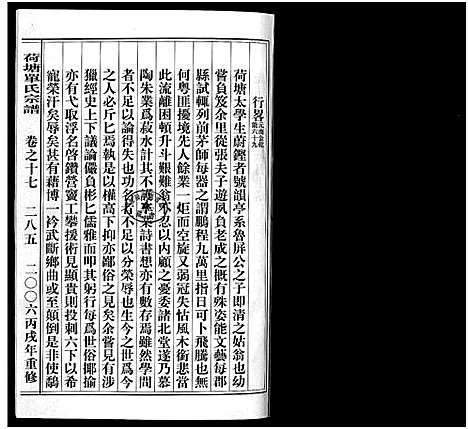 行畧 元席公花
第六十九
荷塘太學生蔚鏗者號韻亭系魯屏公之子即清之姑翁也幼
嘗負笈余里從張夫子遊夙負老成之概有殊姿能文藝每郡
縣試輒列前茅師每器之謂鵬程九萬里指日可卜飛騰也無
何粵匪擾境先人餘業一炬而空旋又弱冠失怙風木銜悲當
此流離困頓升斗艱難翁不忍以內顧之憂委諸北堂遂乃慕
陶朱業爲菽水計其不讀 業詩書想亦有數存焉雖然學問
者不足以論得失也功名者不足以分榮辱也生今之世爲今
之人必斤匕焉執是以權高下抑亦鄙俗之見矣余嘗見有涉
獵經史上下議論儼負彬匕儒雅而叩其躬行每爲世俗揶揄
亦有弋取浮名啓鑽營竇工攀援術見顯貴則投刺六下以希
寵榮汗矣辱矣甚有藉博一衿武斷鄉曲或至顛倒是非使鷸
荷塘單氏宗譜 卷之十七 二八五 二〇〇六丙戌年重修